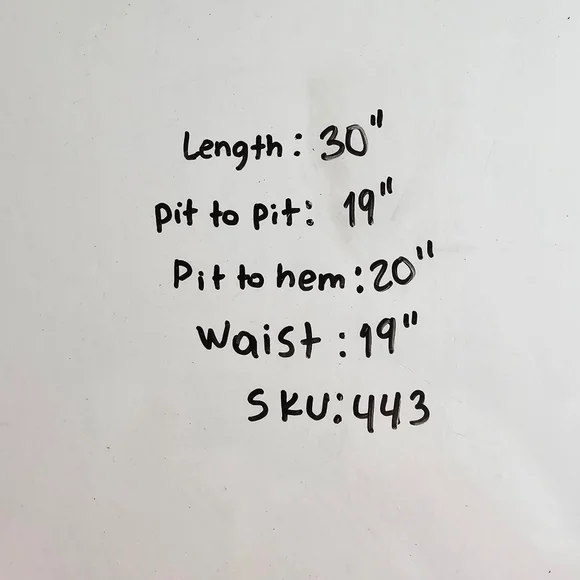 Length: 30"
pit to pit: 19"
Pit to hem: 20"
Waist: 19"
SKU: 443